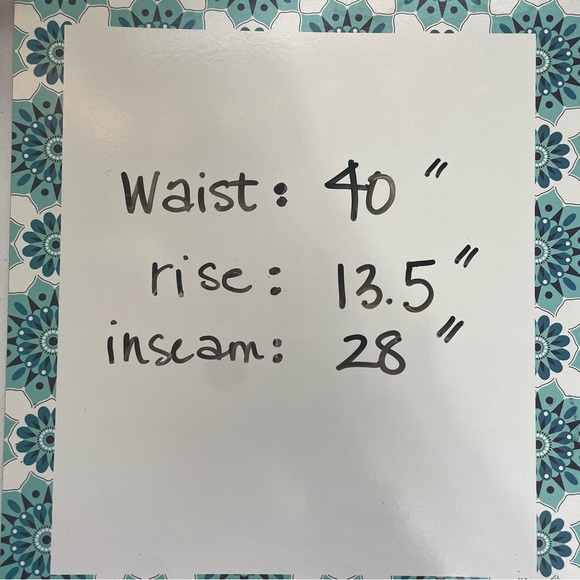 Waist: 40"
rise: 13.5"
inseam: 28"